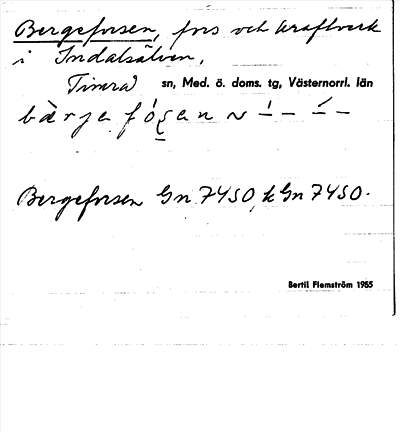 Bergeforsen, fors och kraftverk
i Indalsälven,
Timrå sn, Med. ö. doms. tg, Västernorrl. län
Bergeforsen Gn 7450, k Gn 7450.
Bertil Flemström 1955